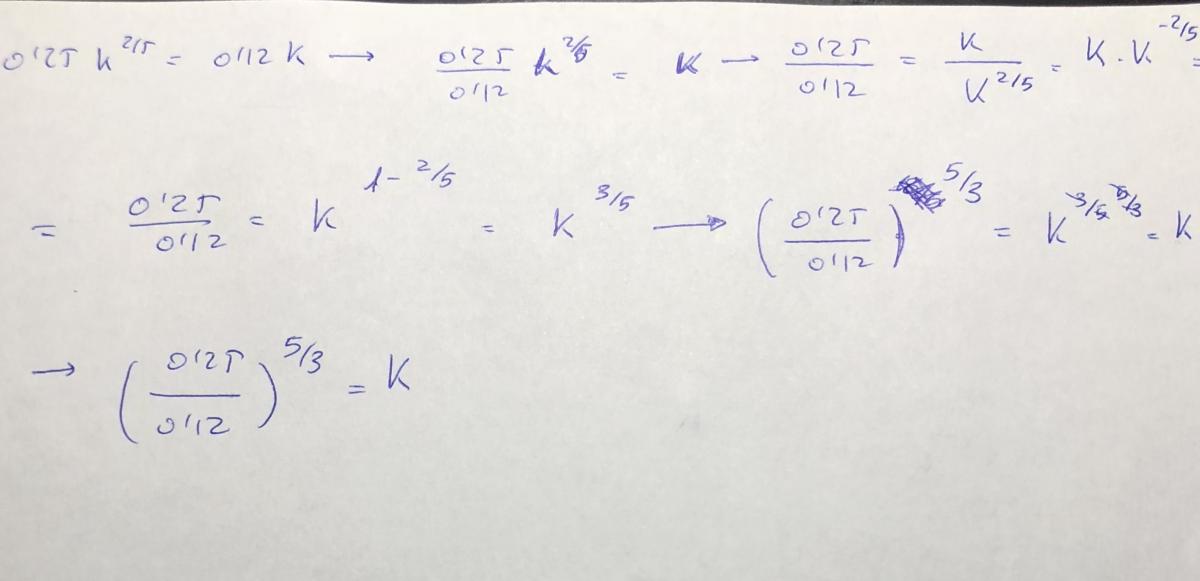 0'25 k^{2/5} = 0'12 K → \frac{0'25}{0'12} k^{2/5} = K → \frac{0'25}{0'12} = \frac{K}{K^{2/5}} = K \cdot K^{-2/5} =
= \frac{0'25}{0'12} = K^{1-2/5} = K^{3/5} → (\frac{0'25}{0'12})^{5/3} = K^{3/5 5/3} = K
→ (\frac{0'25}{0'12})^{5/3} = K